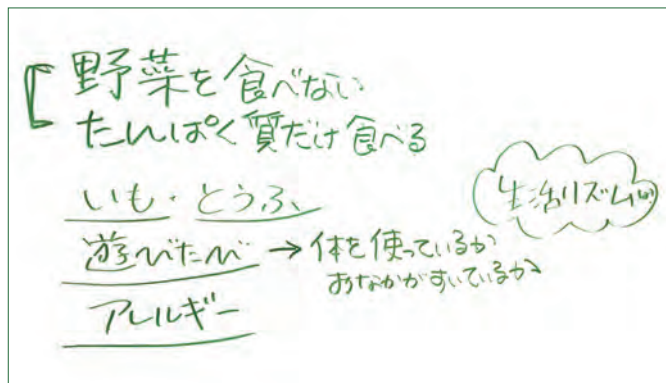 野菜を食べない
たんぱく質だけ食べる
いも・とうふ
遊びたべ → 体を使っているか
おなかがすいているか
アレルギー
生活リズムは?